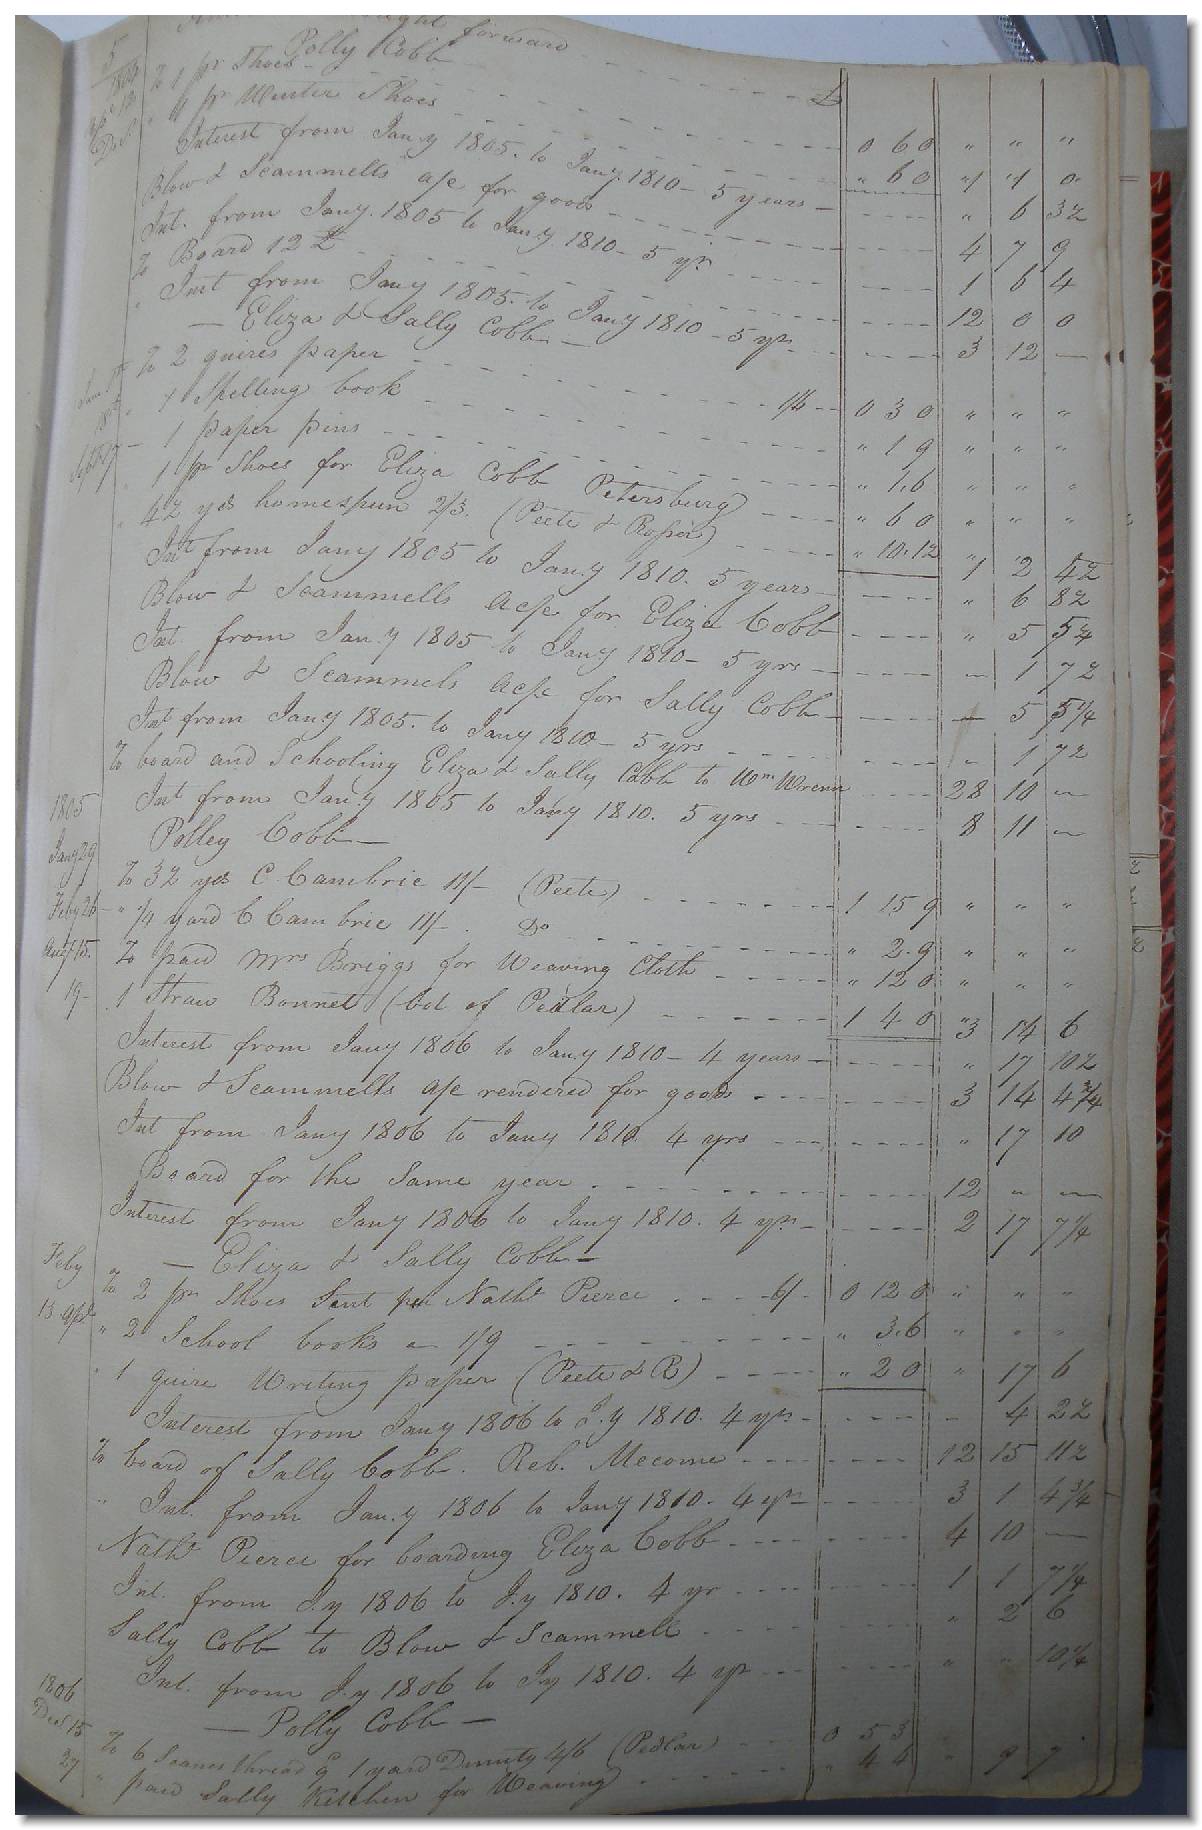 forward
5 Polly Cobb £
1805 To 1 pr Shoes 0 6 0 " " "
" 1 pr Winter Shoes " 6 0 " " 0
Interest from Jany 1805. to Jany 1810 - 5 years " 6 3½
Blow & Scammells a/c for goods 4 7 9
Int. from Jany. 1805 to Jany 1810 - 5 yrs 1 6 4
To Board 12 £ 12 0 0
" Int from Jany 1805. to Jany 1810 - 5 yrs 3 12 —
— Eliza & Sally Cobb —
To 2 quires paper 1/6 0 3 0 " " "
" 1 Spelling book " 1 9 " " "
Sept 17 — 1 paper pins " 1.6 " " "
" 1 pr Shoes for Eliza Cobb Petersburg " 6 0 " " "
" 4½ yds homespun 2/3. (Peete & Roper) " 10.1½ 1 2 4½
Int from Jany 1805 to Jany 1810. 5 years " 6 8½
Blow & Scammells Acpt for Eliza Cobb " 5 5¼
Int. from Jany 1805 to Jany 1810 - 5 yrs — 1 7½
Blow & Scammels Acpt for Sally Cobb — 5 5¼
Int from Jany 1805. to Jany 1810 - 5 yrs " 1 7½
To board and Schooling Eliza & Sally Cobb to Wm Wrenn 28 10 —
1805 Int from Jany 1805 to Jany 1810. 5 yrs 8 11 —
Polley Cobb —
Jany 29 To 3¼ yds C Cambric 11/- (Peete) 1 15 9 " " "
Feby 26 — " ¼ yard C Cambric 11/- . Do " 2.9 " " "
Augt 15. To paid Mrs Briggs for Weaving Cloth " 12 0 " " "
19 - 1 Straw Bonnet (bot of Pedlar) 1 4 0 " 3 14 6
Interest from Jany 1806 to Jany 1810 - 4 years " 17 10½
Blow & Scammells a/c rendered for goods 3 14 4¾
Int from Jany 1806 to Jany 1810 4 yrs " 17 10
Board for the Same year 12 — —
Interest from Jany 1806 to Jany 1810. 4 yrs 2 17 7¼
— Eliza & Sally Cobb —
Feby To 2 prs Shoes Sent per Nathl Pierce 6/- 0 12 0 " " "
13 Apl " 2 School books — 1/9 " 3.6 " " "
" 1 quire Writing paper (Peete & R) " 2 0 " 17 6
Interest from Jany 1806 to J.y 1810. 4 yrs — 4 2½
To board of Sally Cobb. Reb. Mecome 12 15 11½
" Int. from Jan.y 1806 to Jany 1810. 4 yrs 3 1 4¾
Nathl Pierce for boarding Eliza Cobb 4 10 —
Int. from J.y 1806 to J.y 1810. 4 yr 1 1 7¼
Sally Cobb to Blow & Scammell " 2 6
Int. from J.y 1806 to Jy 1810. 4 yr " " 10¼
1806 — Polly Cobb —
Dec 15 To 6 Scanes thread & 1 yard Dimity 4/6 (Pedlar) 0 5 3
27 " paid Sally Kitchen for Weaving " 4 6 " 9 7